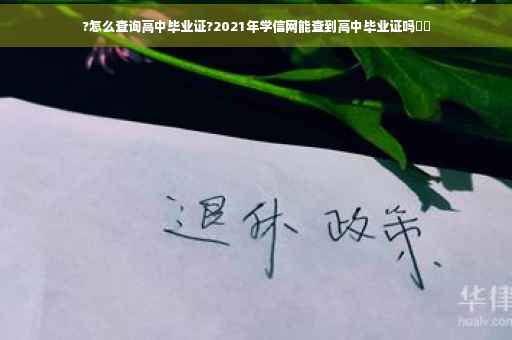 ?怎么查询高中毕业证?2021年学信网能查到高中毕业证吗
退休 政策
华律
hualv.com